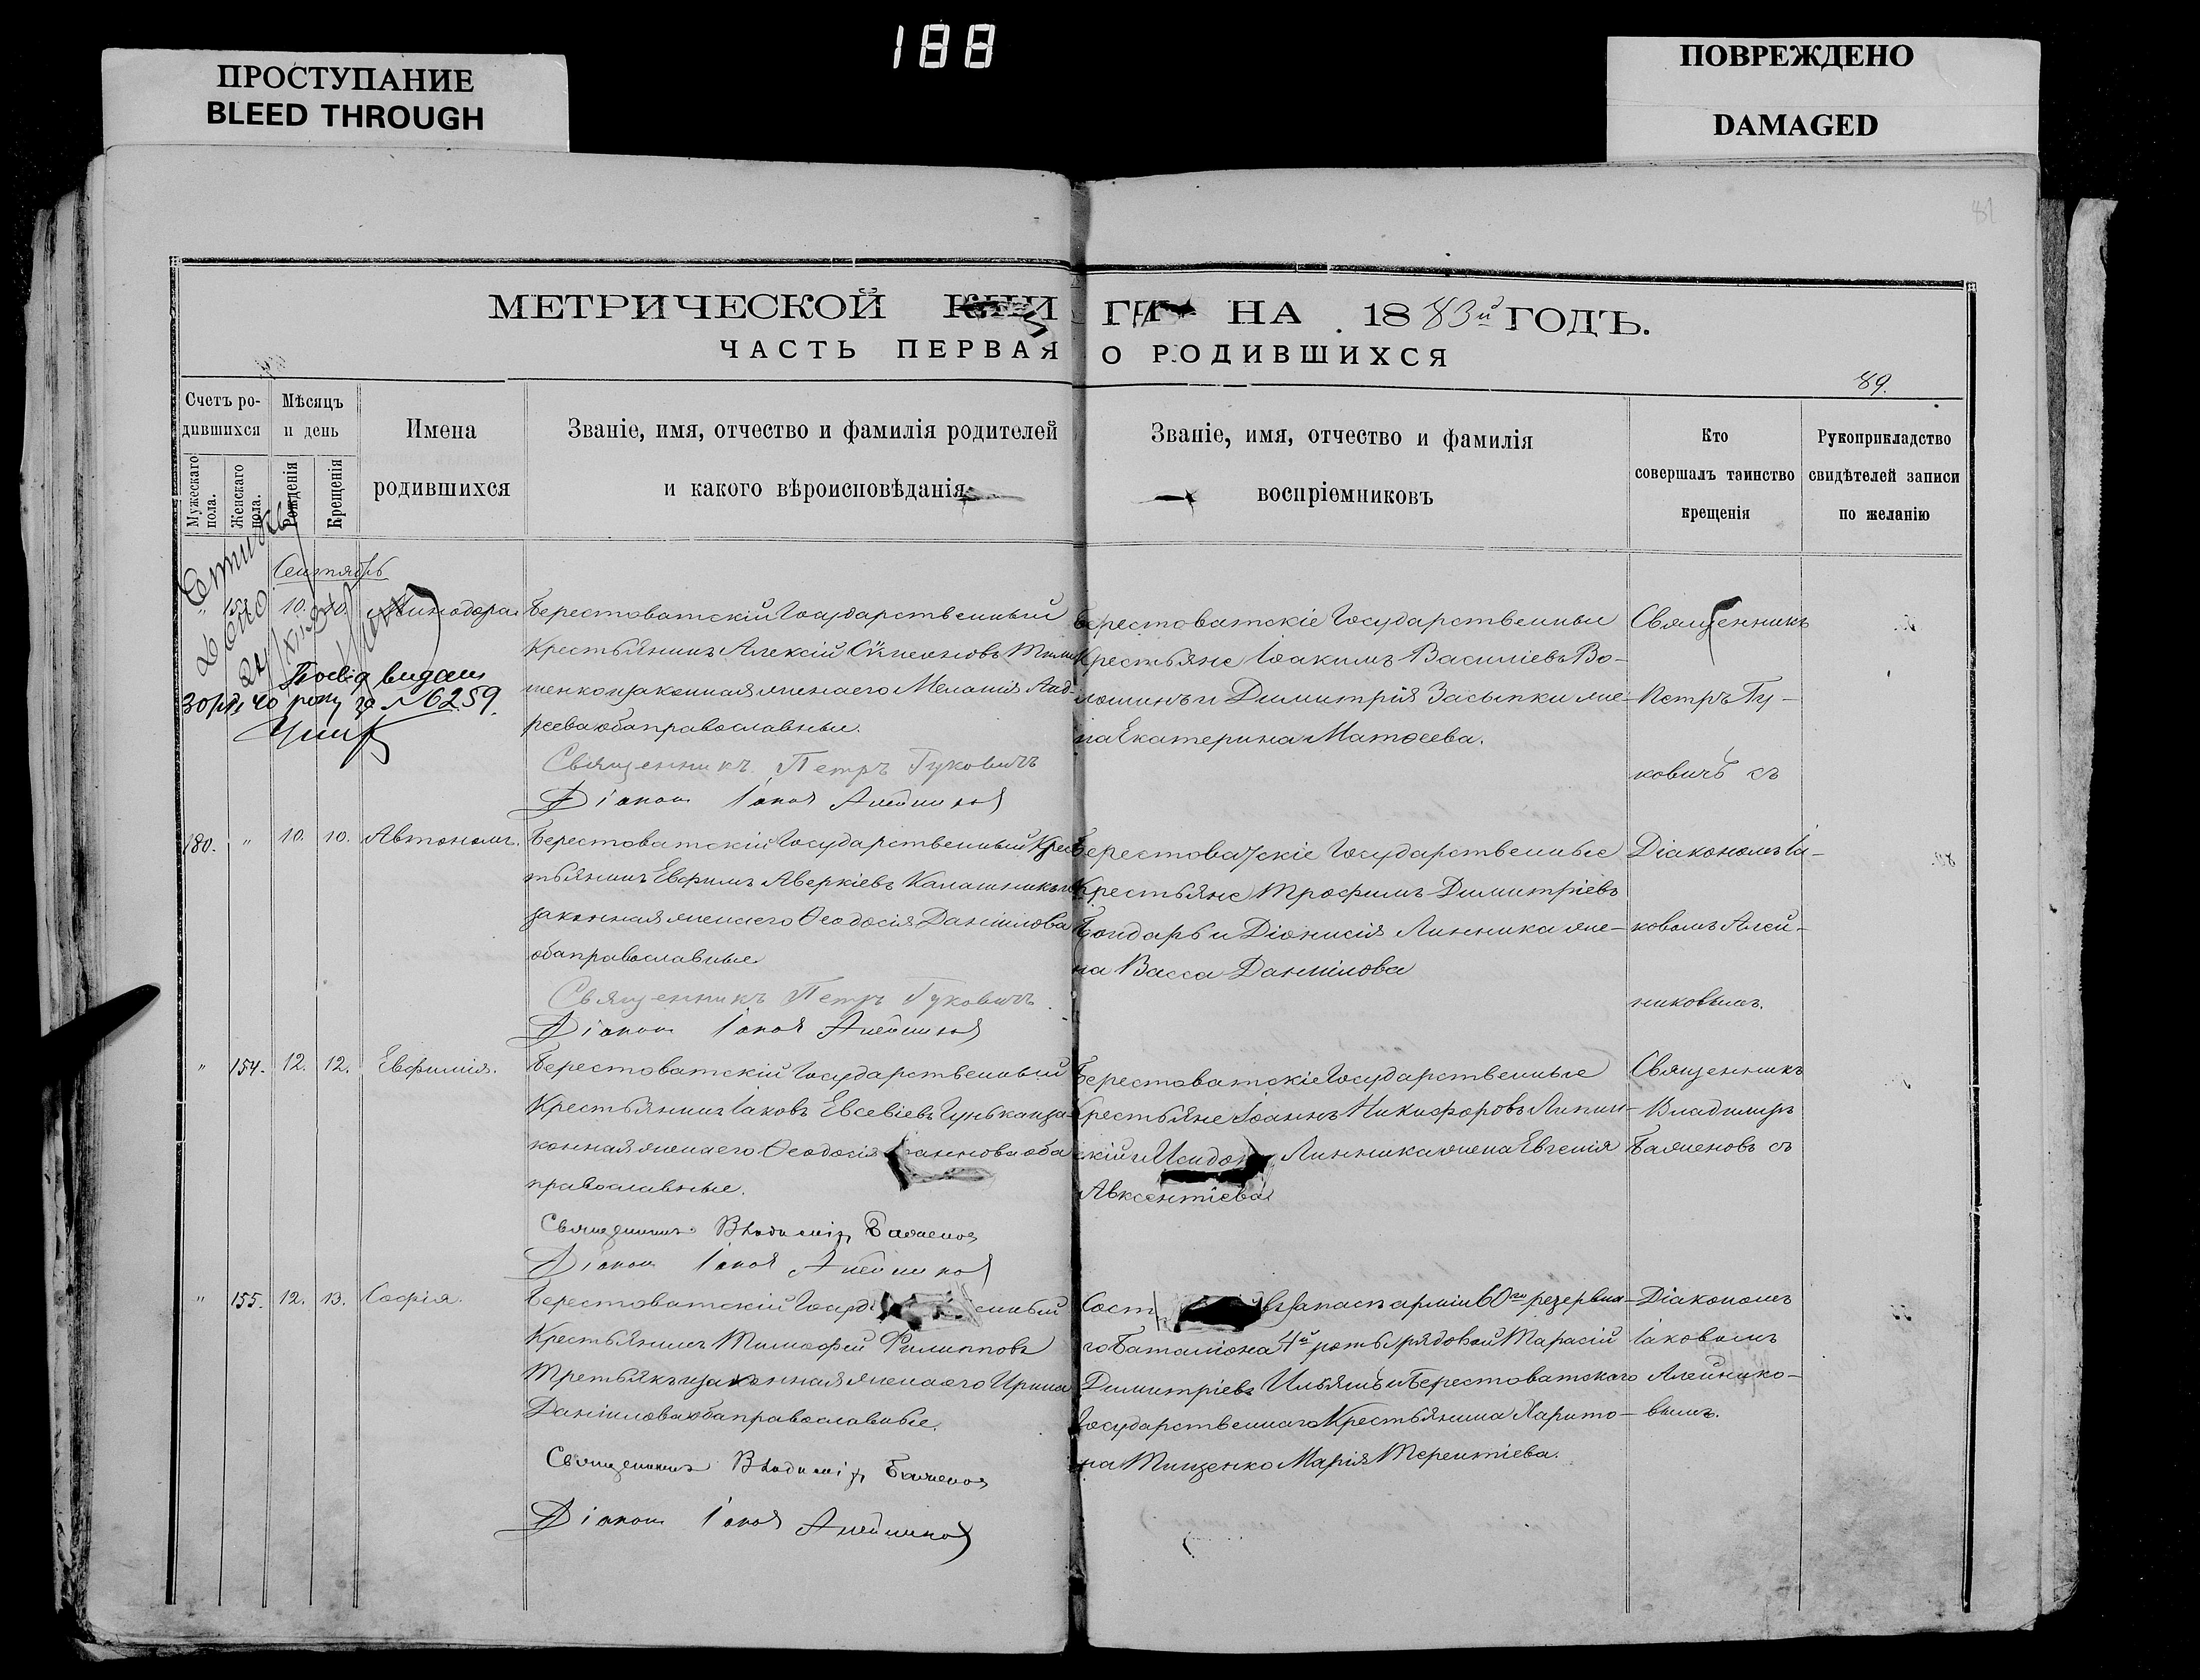 188
ПРОСТУПАНИЕ
BLEED THROUGH
ПОВРЕЖДЕНО
DAMAGED
81
МЕТРИЧЕСКОЙ КНИГИ НА 1883й ГОДЪ.
ЧАСТЬ ПЕРВАЯ О РОДИВШИХСЯ
89.
Счетъ родившихся
Мужескаго пола.
Женскаго пола.
Мѣсяцъ и день
Рожденія
Крещенія
Имена родившихся
Званіе, имя, отчество и фамилія родителей
и какого вѣроисповѣданія
Званіе, имя, отчество и фамилія
воспріемниковъ
Кто
совершалъ таинство
крещенія
Рукоприкладство
свидѣтелей записи
по желанію
Сентябрь
" 10. 10. Минодора
Берестоватскій Государственный
Крестьянинъ Алексій Симеоновъ Тим
шенко и законная жена его Меланія Анд-
реева оба православные.
Священникъ Петръ Гуковичъ
Діаконъ Іаковъ Алейниковъ
Берестоватскіе Государственные
Крестьяне Іоакимъ Василіевъ Во-
лошинъ и Димитрія Засыпки же-
на Екатерина Матѳеева.
Священникъ
Петръ Гу-
ковичъ съ
Посвід видани
40 року за № 6259
180. " 10. 10. Автономъ.
Берестоватскій Государственный Крес
тьянинъ Евфимъ Аверкіевъ Калашникъ и
законная жена его Ѳеодосія Даніилова
оба православные
Священникъ Петръ Гуковичъ.
Діаконъ Іаковъ Алейниковъ
Берестоватскіе Государственные
Крестьяне Трофимъ Димитріевъ
Бондарь и Діонисія Линника же-
на Васса Даніилова
Діакономъ Іа-
ковомъ Алей-
никовымъ.
" 154. 12. 12. Евфимія.
Берестоватскій Государственный
Крестьянинъ Іаковъ Евсевіевъ Гунька и за-
конная жена его Ѳеодосія оба
православные.
Священникъ Владиміръ Баженовъ
Діаконъ Іаковъ Алейниковъ
Берестоватскіе Государственные
Крестьяне Іоаннъ Никифоровъ Липин-
скій и Линника жена Евгенія
Авксентіева
Священникъ
Владимиръ
Баженовъ съ
" 155. 12. 13. Софія.
Берестоватскій
Крестьянинъ Тимофей Филипповъ
Третьякъ и законная жена его Ирина
Даніилова оба православные.
Священникъ Владиміръ Баженовъ
Діаконъ Іаковъ Алейниковъ
въ запасѣ арміи 60го резервна-
го Баталіона 4й роты рядовой Тарасій
Димитріевъ Ильяшъ и Берестоватскаго
Государственнаго Крестьянина Харито-
на Тищенко Марія Терентіева.
Діакономъ
Іаковомъ
Алейнико-
вымъ.